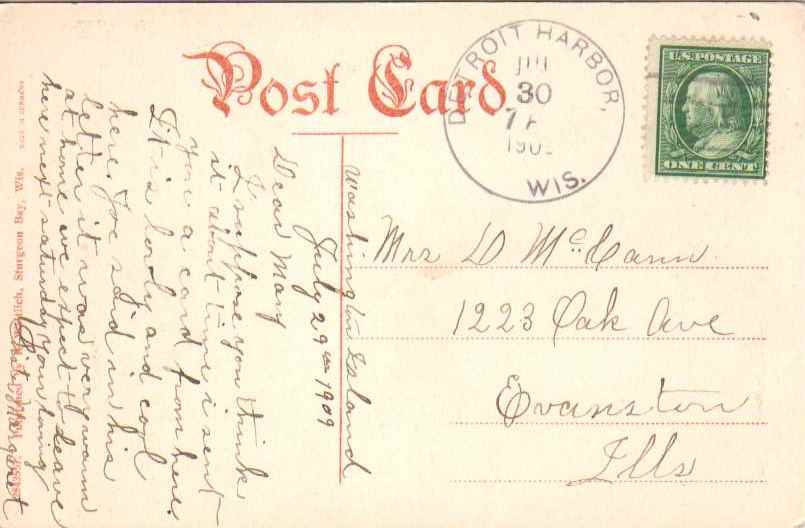 Post Card
DETROIT HARBOR,
JUL
30
7
190
WIS.
U.S. POSTAGE
ONE CENT
Mrs D McCann
1223 Oak Ave
Evanston
Ills
Washington Island
July 29th 1909
Dear Mary
I suppose you think
it about time i sent
you a card from here.
It is lovely and cool
here. Joe said in his
letter it was very warm
at home we expect to leave
here next saturday your loving
Sister Margaret
Sturgeon Bay, Wis.